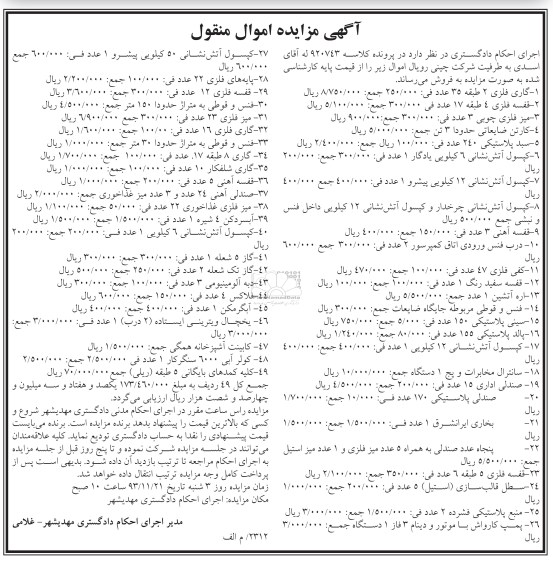 آگهی مزایده اموال منقول
اجرای احکام دادگستری در نظر دارد در پرونده کلاسه ۹۲۰۷۴۳ له آقای
اسدی به طرفیت شرکت چینی رویال اموال زیر را از قیمت پایه کارشناسی
شده به صورت مزایده به فروش می‌رساند.
۱-گاری فلزی ۲ طبقه ۳۵ عدد فی: ۲۵۰/۰۰۰ جمع: ۸/۷۵۰/۰۰۰ ریال
۲-قفسه فلزی ۴ طبقه ۱۷ عدد فی ۳۰۰/۰۰۰ جمع: ۵/۱۰۰/۰۰۰ ریال
۳-میز فلزی چوبی ۳ عدد فی: ۳۰۰/۰۰۰ جمع: ۹۰۰/۰۰۰ ریال
۴-کارتن ضایعاتی حدودا ۳ تن جمع: ۵/۰۰۰/۰۰۰ ریال
۵-سبد پلاستیکی ۲۴۰ عدد فی: ۱۰۰/۰۰۰ ریال جمع: ۲/۴۰۰/۰۰۰ ریال
۶-کپسول آتش‌نشانی ۶ کیلویی یادگار ۱ عدد فی: ۳۰۰/۰۰۰ جمع: ۲۰۰/۰۰۰
ریال
۷-کپسول آتش‌نشانی ۱۲ کیلویی پیشرو ۱ عدد فی: ۴۰۰/۰۰۰ جمع ۴۰۰/۰۰۰
ریال
۸-کپسول آتش‌نشانی چرخدار و کپسول آتش‌نشانی ۱۲ کیلویی داخل فنس
و نبشی جمع ۵۰۰/۰۰۰ ریال
۹-قفسه آهنی ۳ عدد فی: ۱۵۰/۰۰۰ جمع: ۴۰۰/۰۰۰ ریال
۱۰-درب فنس ورودی اتاق کمپرسور ۲ عدد فی: ۳۰۰/۰۰۰ جمع ۶۰۰/۰۰۰
ریال
۱۱-کفی فلزی ۴۷ عدد فی: ۱۰۰/۰۰۰ جمع: ۴۷۰/۰۰۰ ریال
۱۲-قفسه سفید رنگ ۱ عدد فی: ۱۰۰/۰۰۰ جمع: ۱۰۰/۰۰۰ ریال
۱۳-اره آتشین ۱ عدد جمع: ۵/۵۰۰/۰۰۰ ریال
۱۴-فنس و قوطی مربوطه جایگاه ضایعات جمع: ۳۰۰/۰۰۰ ریال
۱۵-سینی پلاستیکی ۱۵۰ عدد فی: ۵/۰۰۰ جمع: ۷۵۰/۰۰۰ ریال
۱۶-پالد پلاستیکی ۱۵۵ عدد فی: ۸۰/۰۰۰ جمع: ۱/۲۴۰/۰۰۰ ریال
۱۷-کپسول آتش‌نشانی ۱۲ کیلویی ۱ عدد فی: ۴۰۰/۰۰۰ جمع: ۴۰۰/۰۰۰
ریال
۱۸-سانترال مخابرات و پچ ۱ دستگاه جمع: ۱۰/۰۰۰/۰۰۰ ریال
۱۹-صندلی اداری ۱۵ عدد فی: ۲۰۰/۰۰۰ جمع: ۴/۵۰۰/۰۰۰ ریال
۲۰- صندلی پلاستیکی ۱۷۰ عدد فی: ۱۰/۰۰۰ جمع: ۱/۷۰۰/۰۰۰
ریال
۲۱- بخاری ایرانشرق ۱ عدد فی: ۱/۵۰۰/۰۰۰ جمع: ۱/۵۰۰/۰۰۰
ریال
۲۲- پنجاه عدد صندلی به همراه ۵ عدد میز فلزی و ۱ عدد میز استیل
جمع: ۵/۵۰۰/۰۰۰ ریال
۲۳-قفسه فلزی ۵ طبقه ۶ عدد فی: ۳۵۰/۰۰۰ جمع: ۲/۱۰۰/۰۰۰ ریال
۲۴-سطل قالب‌سازی (استیل) ۵ عدد فی: ۲۰۰/۰۰۰ جمع: ۱/۰۰۰/۰۰۰
ریال
۲۵-منبع پلاستیکی فشرده ۲ عدد فی: ۱/۵۰۰/۰۰۰ جمع: ۳/۰۰۰/۰۰۰ ریال
۲۶-پمپ کارواش با موتور و دینام ۳ فاز ۱ دستگاه جمع: ۳/۰۰۰/۰۰۰
ریال
۲۷-کپسول آتش‌نشانی ۵۰ کیلویی پیشرو ۱ عدد فی: ۶۰۰/۰۰۰ جمع
۶۰۰/۰۰۰ ریال
۲۸-پایه‌های فلزی ۲۲ عدد فی: ۱۰۰/۰۰۰ جمع: ۲/۲۰۰/۰۰۰ ریال
۲۹-قفسه فلزی ۱۲ عدد فی: ۳۰۰/۰۰۰ جمع: ۳/۶۰۰/۰۰۰ ریال
۳۰-فنس و قوطی به متراژ حدودا ۱۵۰ متر جمع: ۴/۵۰۰/۰۰۰ ریال
۳۱-میز فلزی ۲۳ عدد فی: ۳۰۰/۰۰۰ جمع ۶/۹۰۰/۰۰۰ ریال
۳۲-گاری فلزی ۱۶ عدد فی: ۱۰۰/۰۰۰ جمع: ۱/۶۰۰/۰۰۰ ریال
۳۳-فنس و قوطی به متراژ حدودا ۳۰ متر جمع: ۱/۰۰۰/۰۰۰ ریال
۳۴-گاری ۸ طبقه ۱۷ عدد فی: ۱۰۰/۰۰۰ جمع: ۱/۷۰۰/۰۰۰ ریال
۳۵-گاری شلفکار ۱۰ عدد فی: ۱۰۰/۰۰۰ جمع: ۱/۰۰۰/۰۰۰ ریال
۳۶-قفسه آهنی ۵ عدد فی: ۲۰۰/۰۰۰ جمع: ۱/۰۰۰/۰۰۰ ریال
۳۷-صندلی آهنی ۲۴ عدد و ۳ عدد میز غذاخوری جمع: ۲/۰۰۰/۰۰۰ ریال
۳۸-میز فلزی غذاخوری ۲۲ عدد فی: ۵۰/۰۰۰ جمع: ۱/۱۰۰/۰۰۰ ریال
۳۹-آبسردکن ۴ شیره ۱ عدد فی: ۱/۵۰۰/۰۰۰ جمع: ۱/۵۰۰/۰۰۰ ریال
۴۰-کپسول آتش‌نشانی ۶ کیلویی ۱ عدد فی: ۲۰۰/۰۰۰ جمع: ۲۰۰/۰۰۰
ریال
۴۱-گاز ۵ شعله ۱ عدد فی: ۳۰۰/۰۰۰ جمع: ۳۰۰/۰۰۰ ریال
۴۲-گاز تک شعله ۲ عدد فی: ۲۵۰/۰۰۰ جمع: ۵۰۰/۰۰۰ ریال
۴۳-دبه آلومینیومی ۳ عدد فی: ۱۰۰/۰۰۰ جمع: ۳۰۰/۰۰۰ ریال
۴۴-فلاکس ۴ عدد فی: ۱۵۰/۰۰۰ جمع: ۶۰۰/۰۰۰ ریال
۴۵-آبگرمکن ۱ عدد فی: ۴۰۰/۰۰۰ جمع: ۴۰۰/۰۰۰ ریال
۴۶-یخچال ویترینی ایستاده (۲ درب) ۱ عدد فی: ۳/۰۰۰/۰۰۰ جمع:
۳/۰۰۰/۰۰۰ ریال
۴۷-کابینت آشپزخانه همگی جمع: ۱/۵۰۰/۰۰۰ ریال
۴۸-کولر آبی ۶۰۰۰ سنگرکار ۱ عدد فی ۲/۵۰۰/۰۰۰ جمع: ۲/۵۰۰/۰۰۰
۴۹-کلیه کمدهای بایگانی ۵ طبقه (ریلی) جمع: ۷۰/۰۰۰/۰۰۰ ریال
جمع کل ۴۹ ردیف به مبلغ ۱۷۳/۴۶۰/۰۰۰ یکصد و هفتاد و سه میلیون و
چهارصد و شصت هزار ریال ارزیابی می‌گردد.
مزایده راس ساعت مقرر در اجرای احکام مدنی دادگستری مهدیشهر شروع و
کسی که بالاترین قیمت را پیشنهاد بدهد برنده مزایده است. برنده می‌بایست
قیمت پیشنهادی را نقدا به حساب دادگستری تودیع نماید. کلیه علاقه‌مندان
می‌توانند در جلسه مزایده شرکت نموده و تا پنج روز قبل از جلسه مزایده
به اجرای احکام مراجعه تا ترتیب بازدید آن داده شود. بدیهی است پس از
پرداخت کامل وجه مزایده ترتیب انتقال داده خواهد شد.
زمان مزایده روز ۳ شنبه تاریخ ۹۳/۱۱/۲۱ ساعت ۱۰ صبح
مکان مزایده: اجرای احکام دادگستری مهدیشهر
مدیر اجرای احکام دادگستری مهدیشهر- غلامی
۲۳۱۲/ م الف